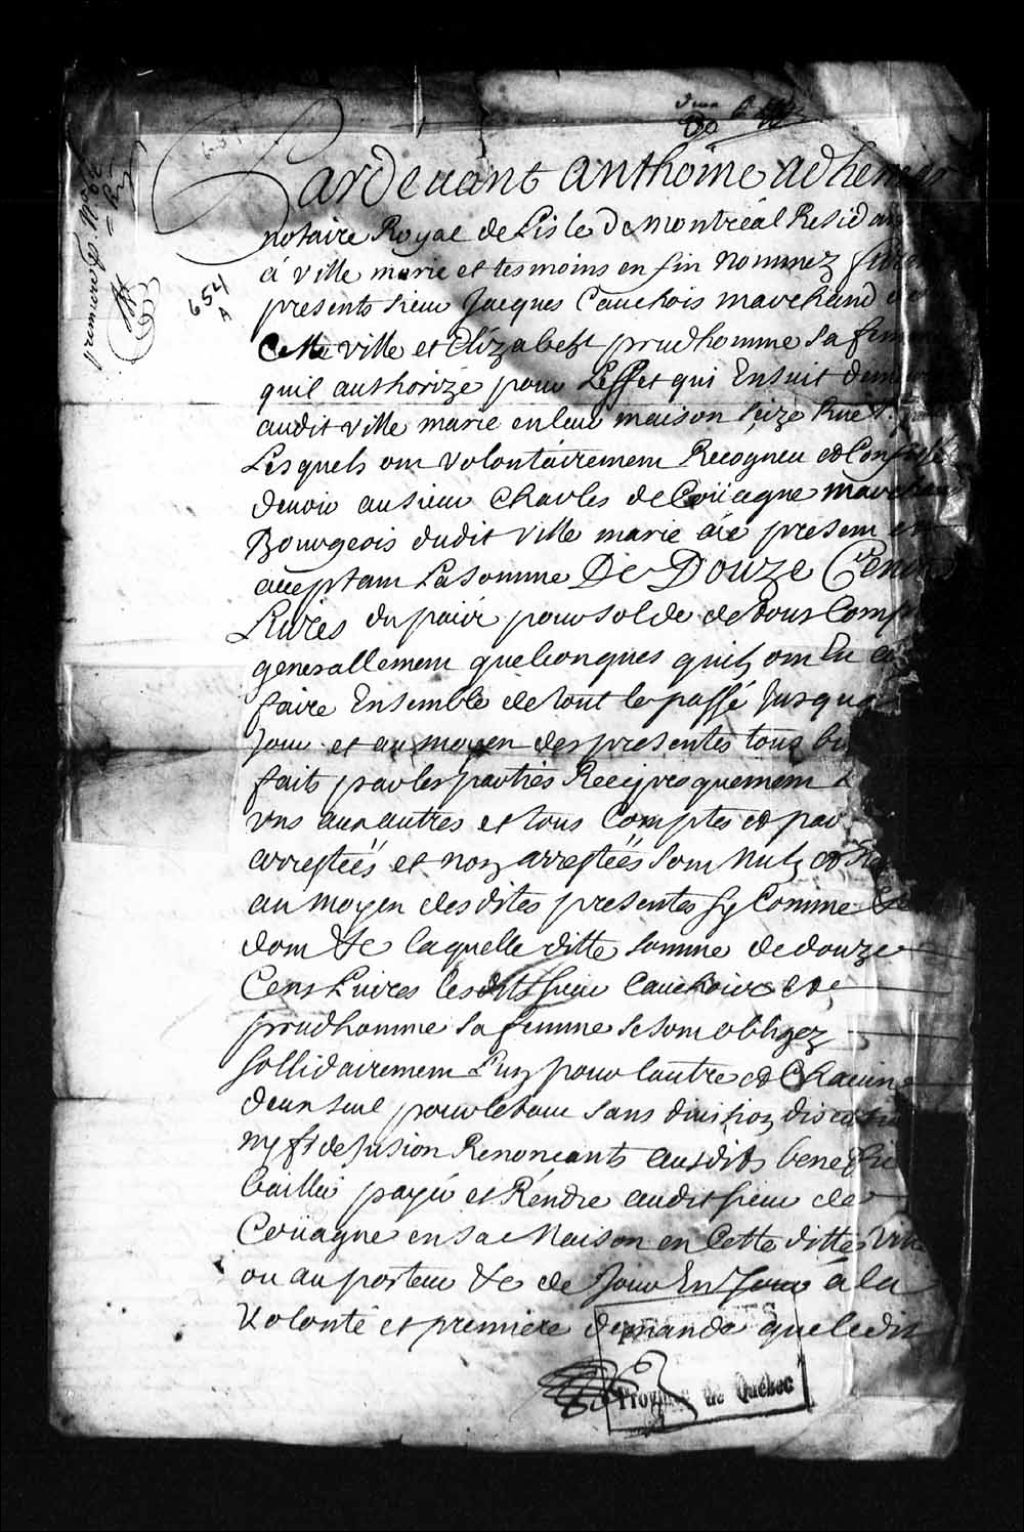 Pardevant Anthoine adhemar
notaire Royal de Lisle De Montréal Resid
à ville marie et tesmoins en fin Nommez
presents sieur Jacques Cauchois marchand
Cette ville et Elizabeht prudhomme sa
quil authorize pour Leffet qui Ensuit
audit ville marie en leur maison size Rue
Lesquels om volontairemem Recogneu et Confessé
devoir au sieur Charles de Coüagne marchan
Bourgeois dudit ville marie à ce presem
acceptam La somme De Douze Cents
Livres du païs pour solde de tous Comp
generallemem quelconques quilz om Eu
faire Ensemble de tout le passé Jusqua
Jour et au moyen des presentes tous
faits par les parties Reciproquemem
uns aux autres et tous Comptes et par
arrestéës et non arrestéës som Nulz et
au moyen des dites presentes sy Comme
dom &c laquelle ditte somme de douze
Cens Livres lesdits sieur Cauchois et
prudhomme sa femme se som obligez
sollidairemem Lun pour lautre et Chacun
deux seul pour le tout sans division
ny fidejusion Renoncants ausdits
bailler payer et Rendre audit sieur de
Coüagne en sa Maison en Cette ditte Ville
ou au porteur &c de Jour En Jour à la
Volonté et premiere demande que ledit
654
A
Province de Québec